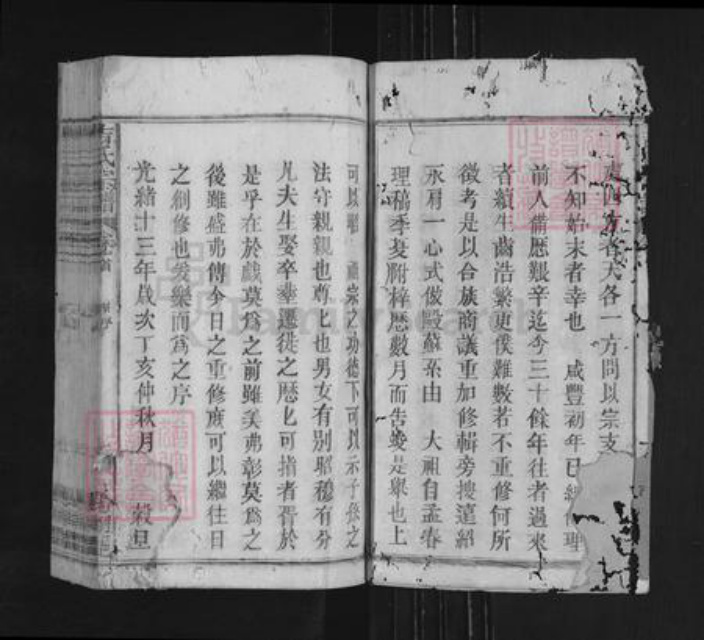 東西方者天各一方問以宗支
不知始末者幸也　咸豐初年已經修理
前人備歷艱辛迄今三十餘年往者過來
者續生齒浩繁更僕難數若不重修何所
徵考是以合族商議重加修輯旁搜遠紹
一心式倣歐蘇系由　大祖自孟春
理稿季夏附梓歷數月而告竣是舉也上
可以昭　祖宗之功德下可以示子孫之
法守親親也尊尊也男女有別昭穆有分
凡夫生娶卒葬遷徙之歷歷可指者胥於
是乎在於戲莫為之前雖美弗彰莫為之
後雖盛弗傳今日之重修庶可以繼往日
之創修也爰樂而為之序
光緒十三年歲次丁亥仲秋月　穀旦
氏宗譜